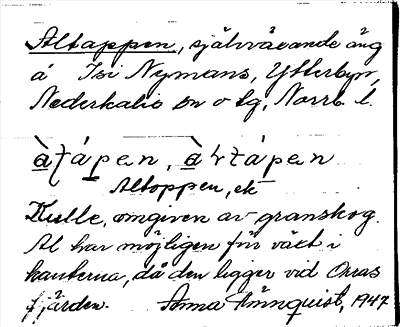 Altappen, självvående äng
å Isi Nymans, Ytterbyn,
Nederkalix sn o tg, Norrb. l.
àtápen, àltápen
Altoppen, ek
Kulle, omgiven av granskog.
Al har möjligen för växt i
kanterna, då den ligger vid Oxas
fjärden. Anna Rönnquist, 1947